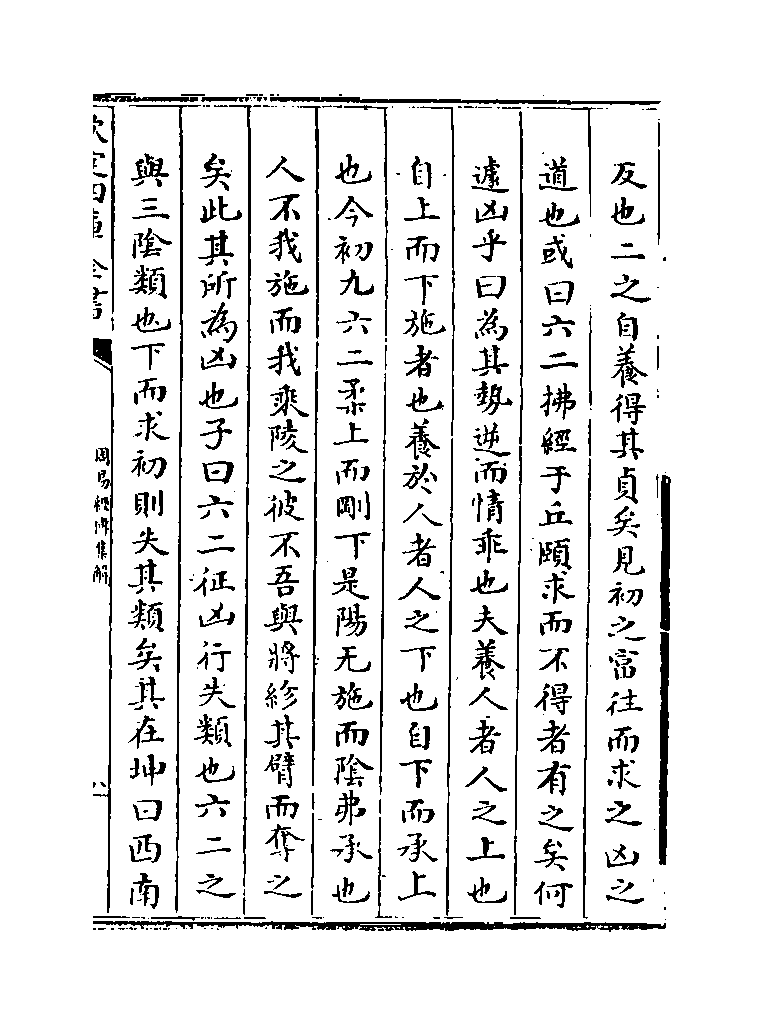 反也二之自養得其貞矣見初之富往而求之凶之
道也或曰六二拂經于丘頤求而不得者有之矣何
遽凶乎曰為其勢逆而情乖也夫養人者人之上也
自上而下施者也養於人者人之下也自下而承上
也今初九六二柔上而剛下是陽无施而陰弗承也
人不我施而我乘陵之彼不吾與將紾其臂而奪之
矣此其所為凶也子曰六二征凶行失類也六二之
與三陰類也下而求初則失其類矣其在坤曰西南
欽定四庫全書
周易經傳集解
八